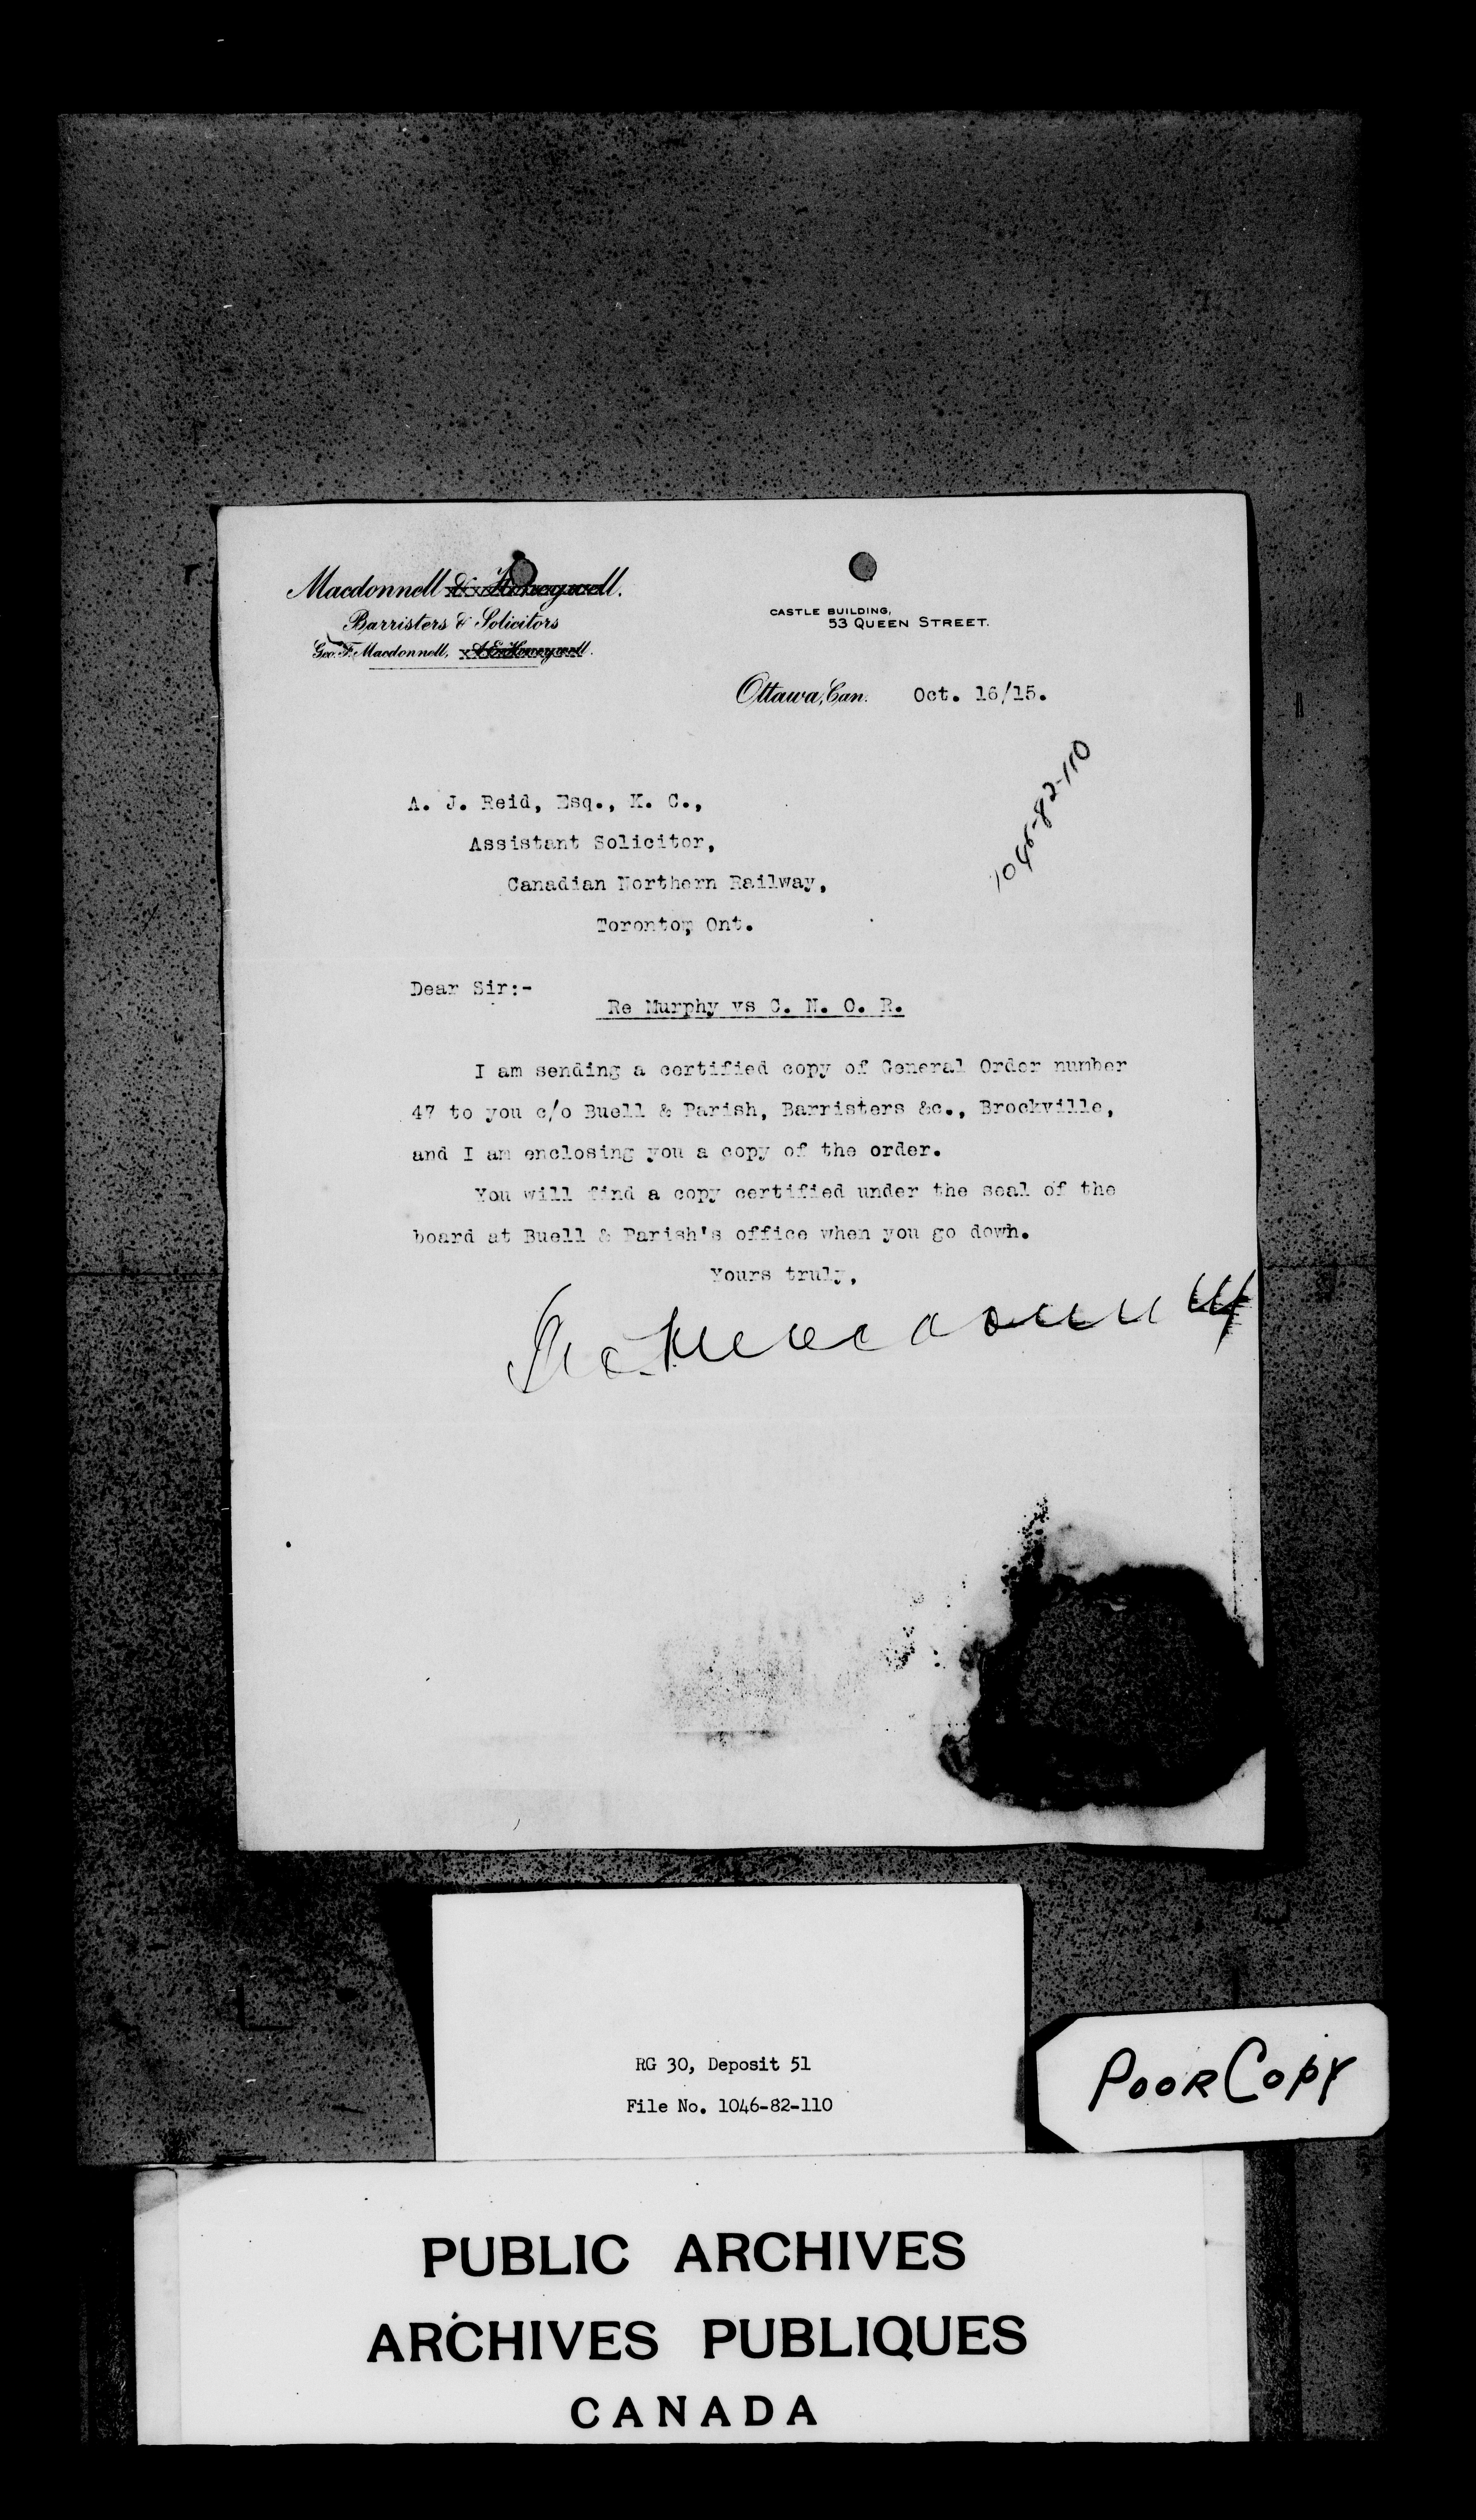 Macdonnell & Honeywell.
Barristers & Solicitors
Geo. F. Macdonnell, A. E. Honeywell.
CASTLE BUILDING,
53 QUEEN STREET.
Ottawa, Can. Oct. 16/15.
1046-82-110
A. J. Reid, Esq., K. C.,
Assistant Solicitor,
Canadian Northern Railway,
Toronto, Ont.
Dear Sir:-
Re Murphy vs C. N. O. R.
I am sending a certified copy of General Order number
47 to you c/o Buell & Parish, Barristers &c., Brockville,
and I am enclosing you a copy of the order.
You will find a copy certified under the seal of the
board at Buell & Parish's office when you go down.
Yours truly,
Geo F Macdonnell
RG 30, Deposit 51
File No. 1046-82-110
POOR COPY
PUBLIC ARCHIVES
ARCHIVES PUBLIQUES
CANADA